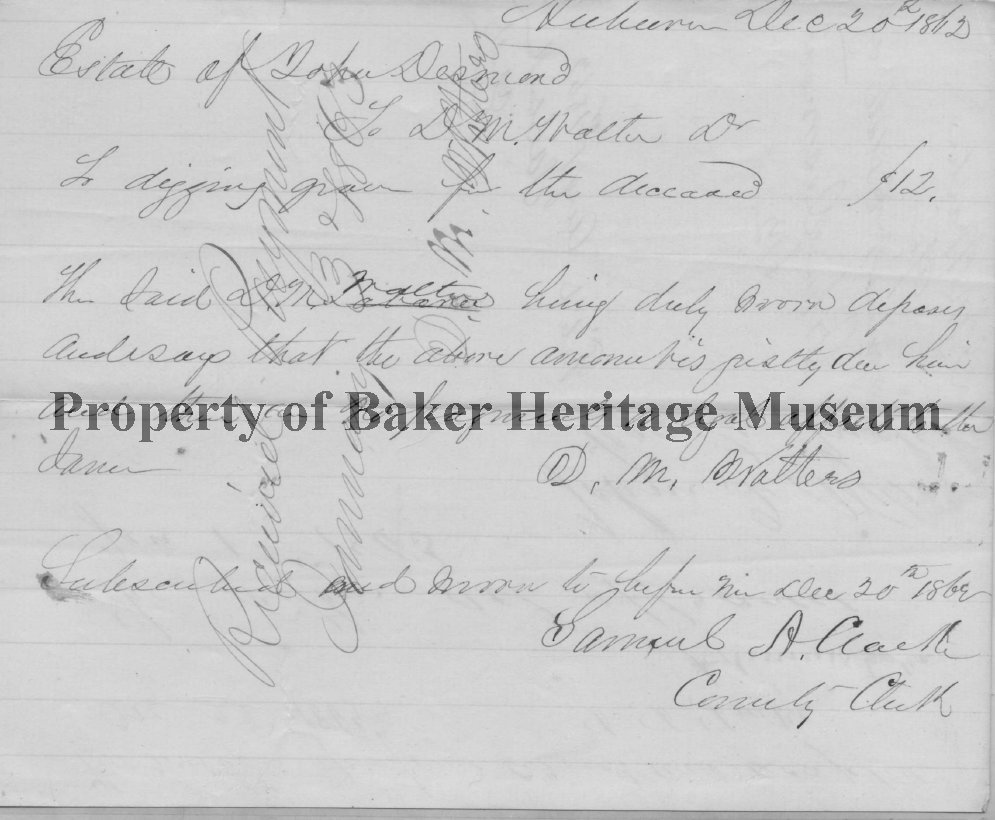 Auburn Dec 20th 1862
Estate of John Desmond
To D. M. Walter Dr
To digging grave for the deceased $12.
The said D. M. Walter being duly sworn deposes
and says that the above amount is justly due him
and that no
same
D. M. Walters
Subscribed and sworn to before me Dec 20th 1862
Samuel A. Clarke
County Clerk
Received Payment
January 3d 1863
D. M. Walters
Property of Baker Heritage Museum